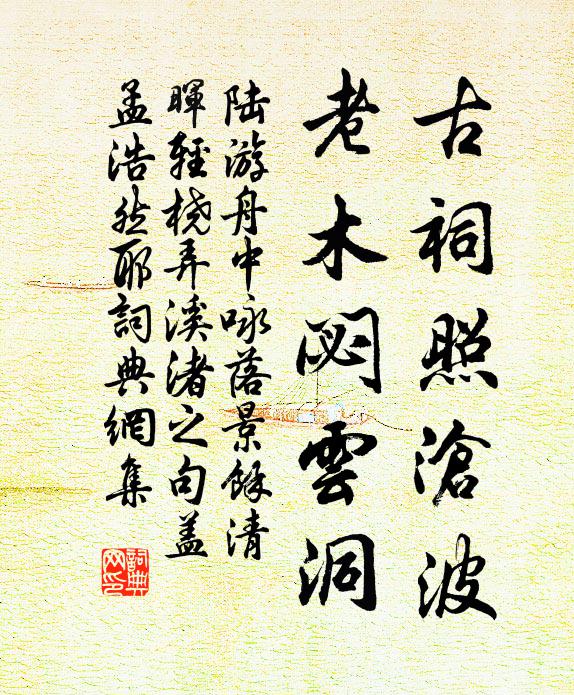 古祠照滄波
老木閟雲洞
陆游舟中咏落景餘清
暉輕桡弄溪渚之句盖
孟浩然耶詞典網集
詞典网印